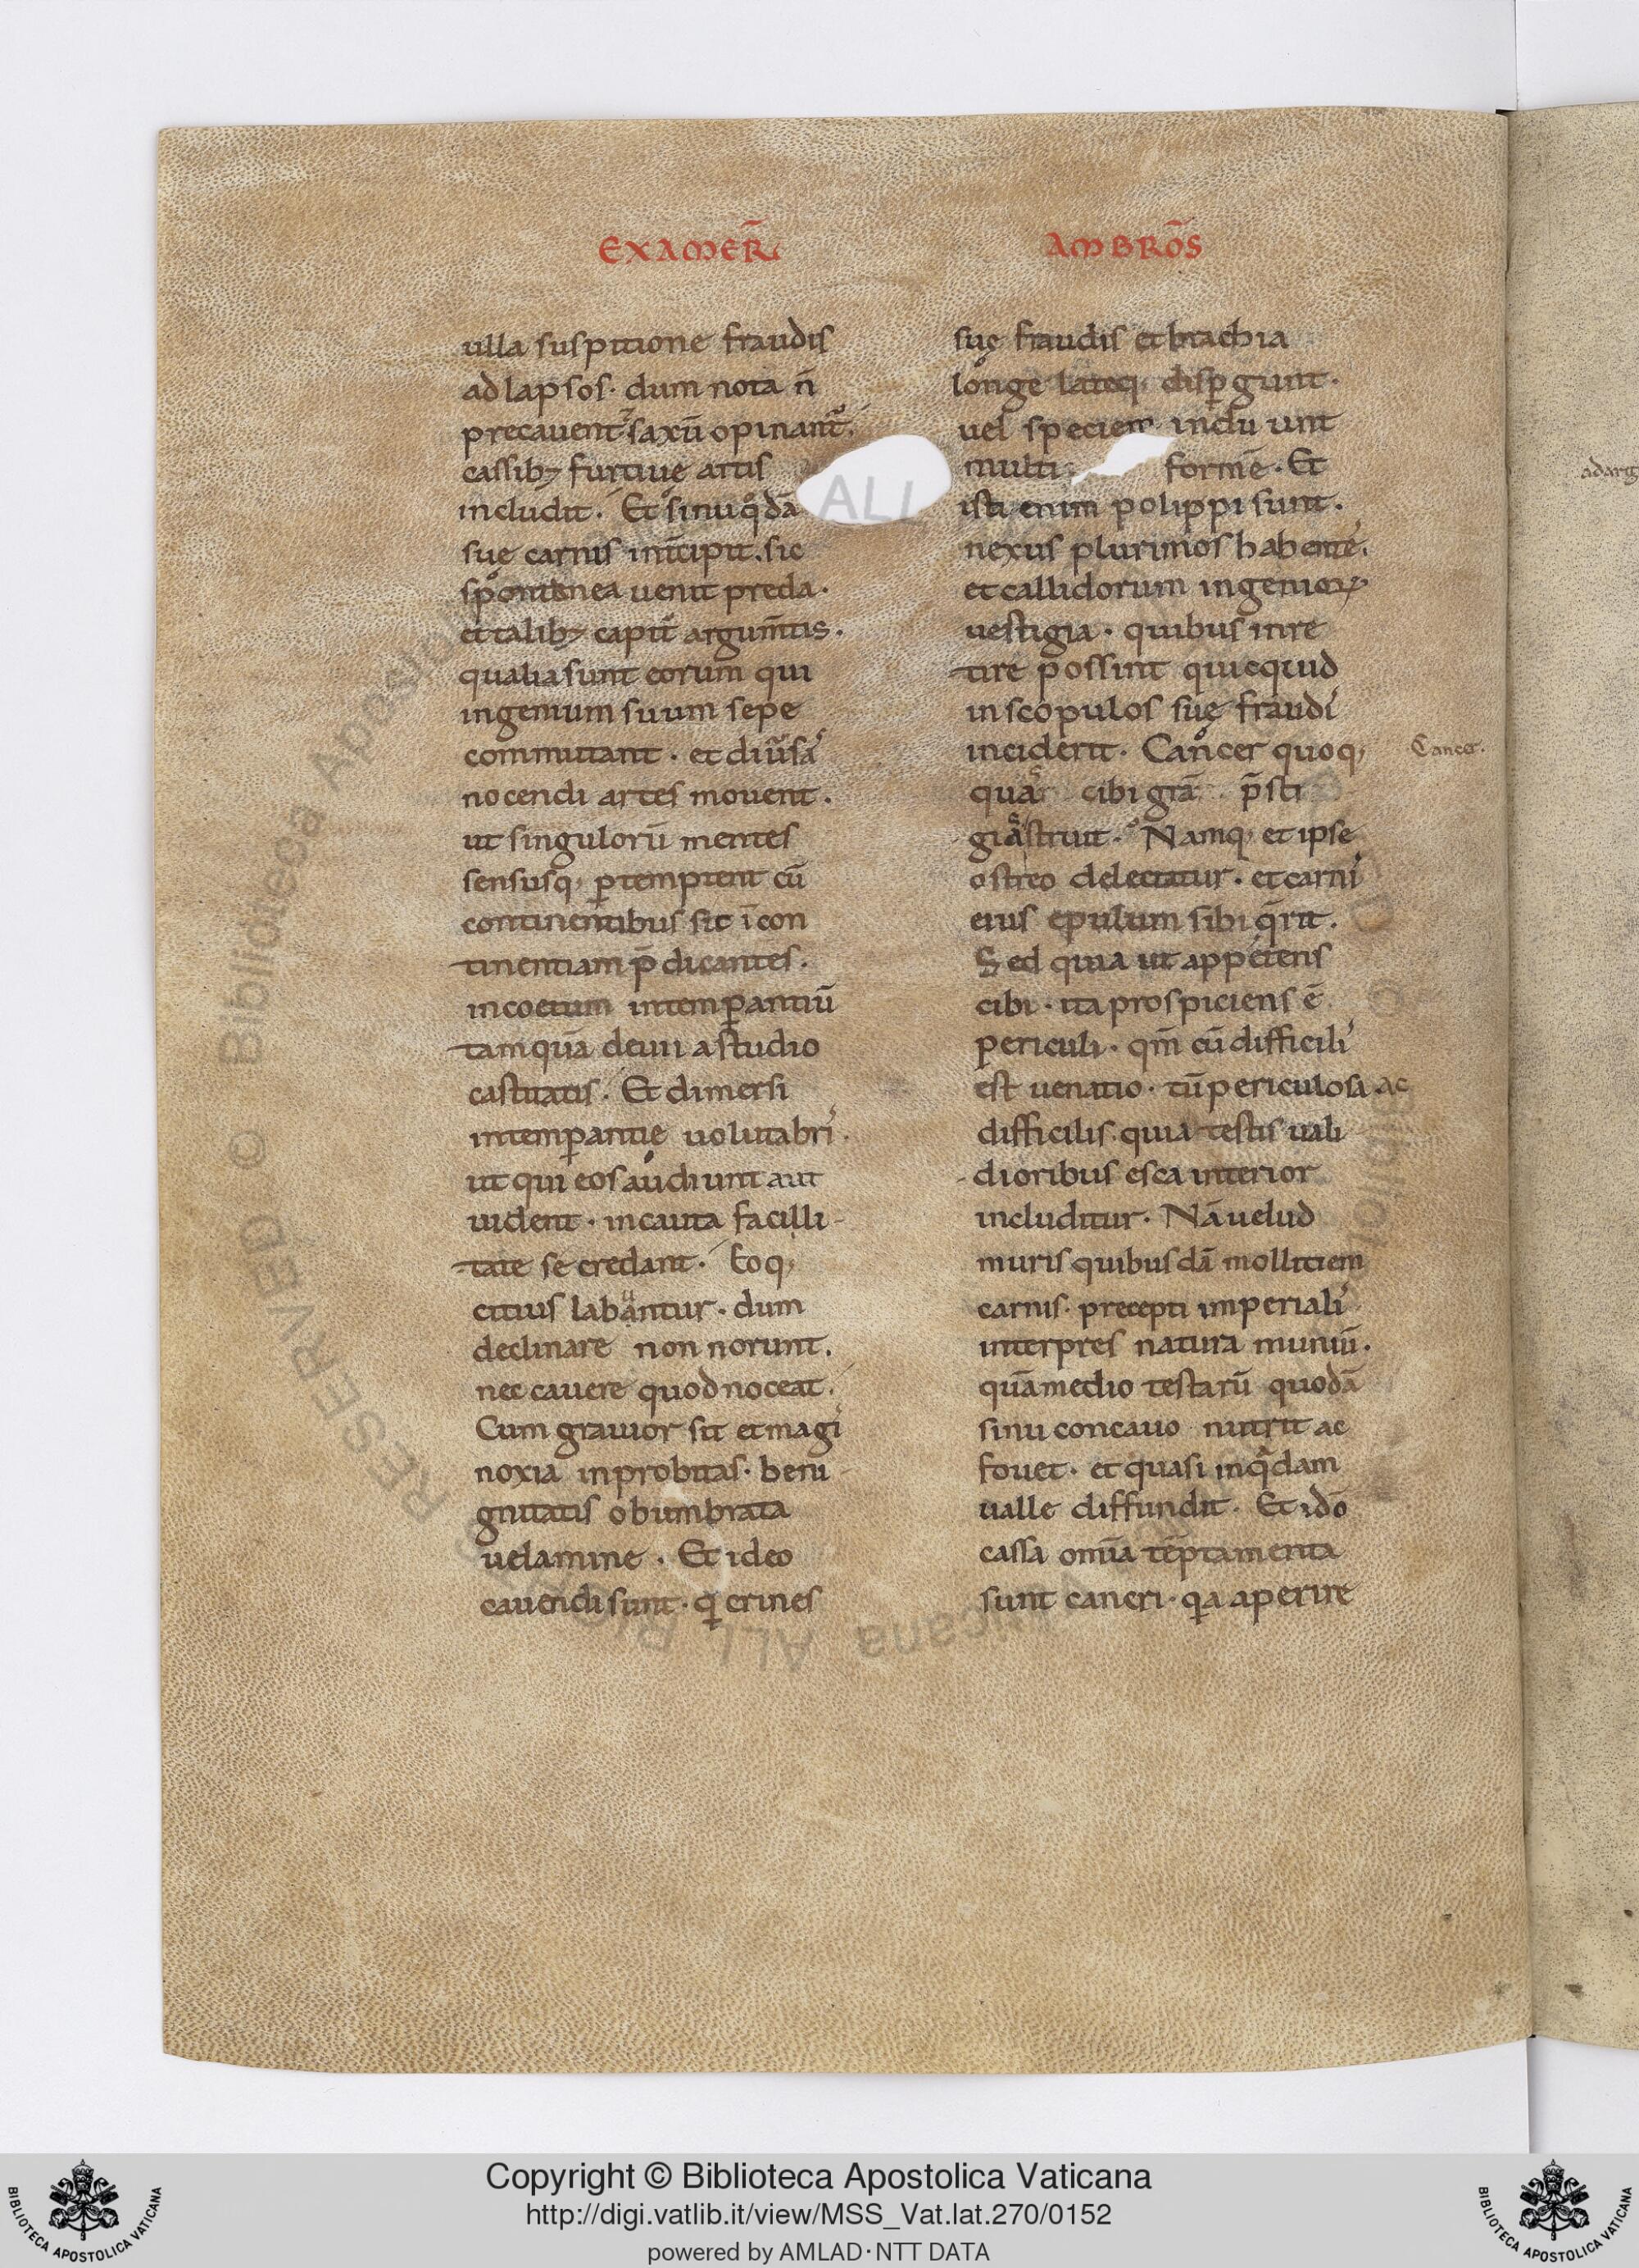 EXAMER̄
ulla suspitione fraudis
adlapsos· dum nota n̄
precauent᷑ saxū opinant᷑.
cassib; furtiuę artis
includit. Et sinu qͦdā
suę carnis int̄cipit. sic
spontanea uenit preda·
et talib; capit᷑ argum̄tis.
qualia sunt eorum qui
ingenium suum sepe
commutant· et diu̾sas
nocendi artes mouent.
ut singulorū mentes
sensusq; ꝑtemptent cū
continentibus sit īcon
tinentiam p̄dicantes.
in coetum intemꝑantiū
tamquā deuii a studio
castitatis. Et dimersi
intemꝑantię uolutabris.
ut qui eos audiunt aut
uident· incauta facilli-
tate se credant. Eoq;
citius labantur· dum
declinare non norunt.
nec cauere quod noceat.
Cum grauior sit et magis
noxia inprobitas· beni-
gnitatis obumbrata
uelamine. Et ideo
cauendi sunt· qͥ crines
AMBRŌS
suę fraudis et brachia
longe lateq; disꝑgunt·
uel speciem induunt
multi formē· Et
isti enim polippi sunt.
nexus plurimos habentes.
et callidorum ingenioꝝ
uestigia· quibus inre
tire possint quicquid
in scopulos suę fraudis
inciderit· Cancer quoq;
Cancer.
quas cibi gr̄ā p̄sti
gias struit· Namq; et ipse
ostreo delectatur· et carnis
eius epulum sibi q̄rit.
Sed quia ut appetens
cibi· ita prospiciens ē
periculi· qm̄ cū difficilis
est uenatio· tū periculosa ac
difficilis quia testis uali
dioribus esca interior
includitur· Nā uelud
muris quibusdā mollitiem
carnis· precepti imperialis
interpres natura muniuit·
quā medio testarū quodā
sinu concauo nutrit ac
fouet· et quasi in qͣdam
ualle diffundit· Et idō
cassa om̄ia tēptamenta
sunt cancri· qͥa aperire
Copyright © Biblioteca Apostolica Vaticana
http://digi.vatlib.it/view/MSS_Vat.lat.270/0152
powered by AMLAD·NTT DATA
BIBLIOTECA APOSTOLICA VATICANA
BIBLIOTECA APOSTOLICA VATICANA